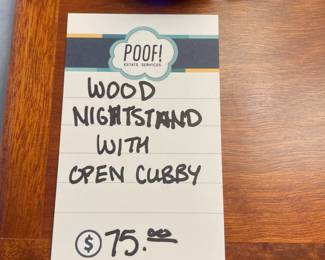 POOF!
ESTATE SERVICES
WOOD
NIGHTSTAND
WITH
OPEN CUBBY
$ 75.00